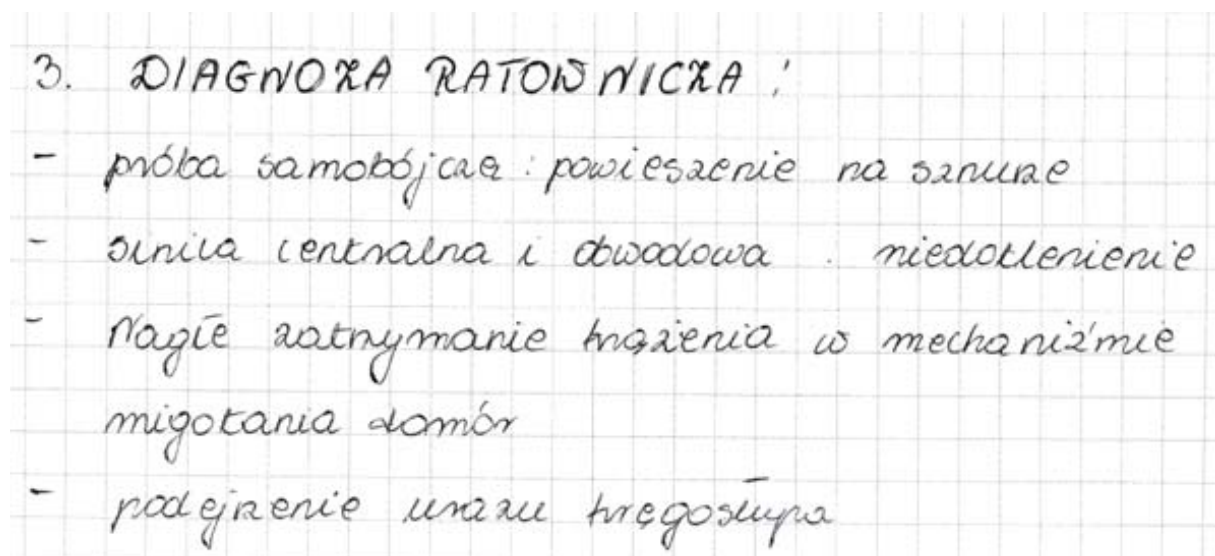 3. DIAGNOZA RATOWNICZA:
- próba samobójcza: powieszenie na sznurze
- sinica centralna i obwodowa : niedotlenienie
- Nagłe zatrzymanie krążenia w mechaniźmie
migotania komór
- podejrzenie urazu kręgosłupa